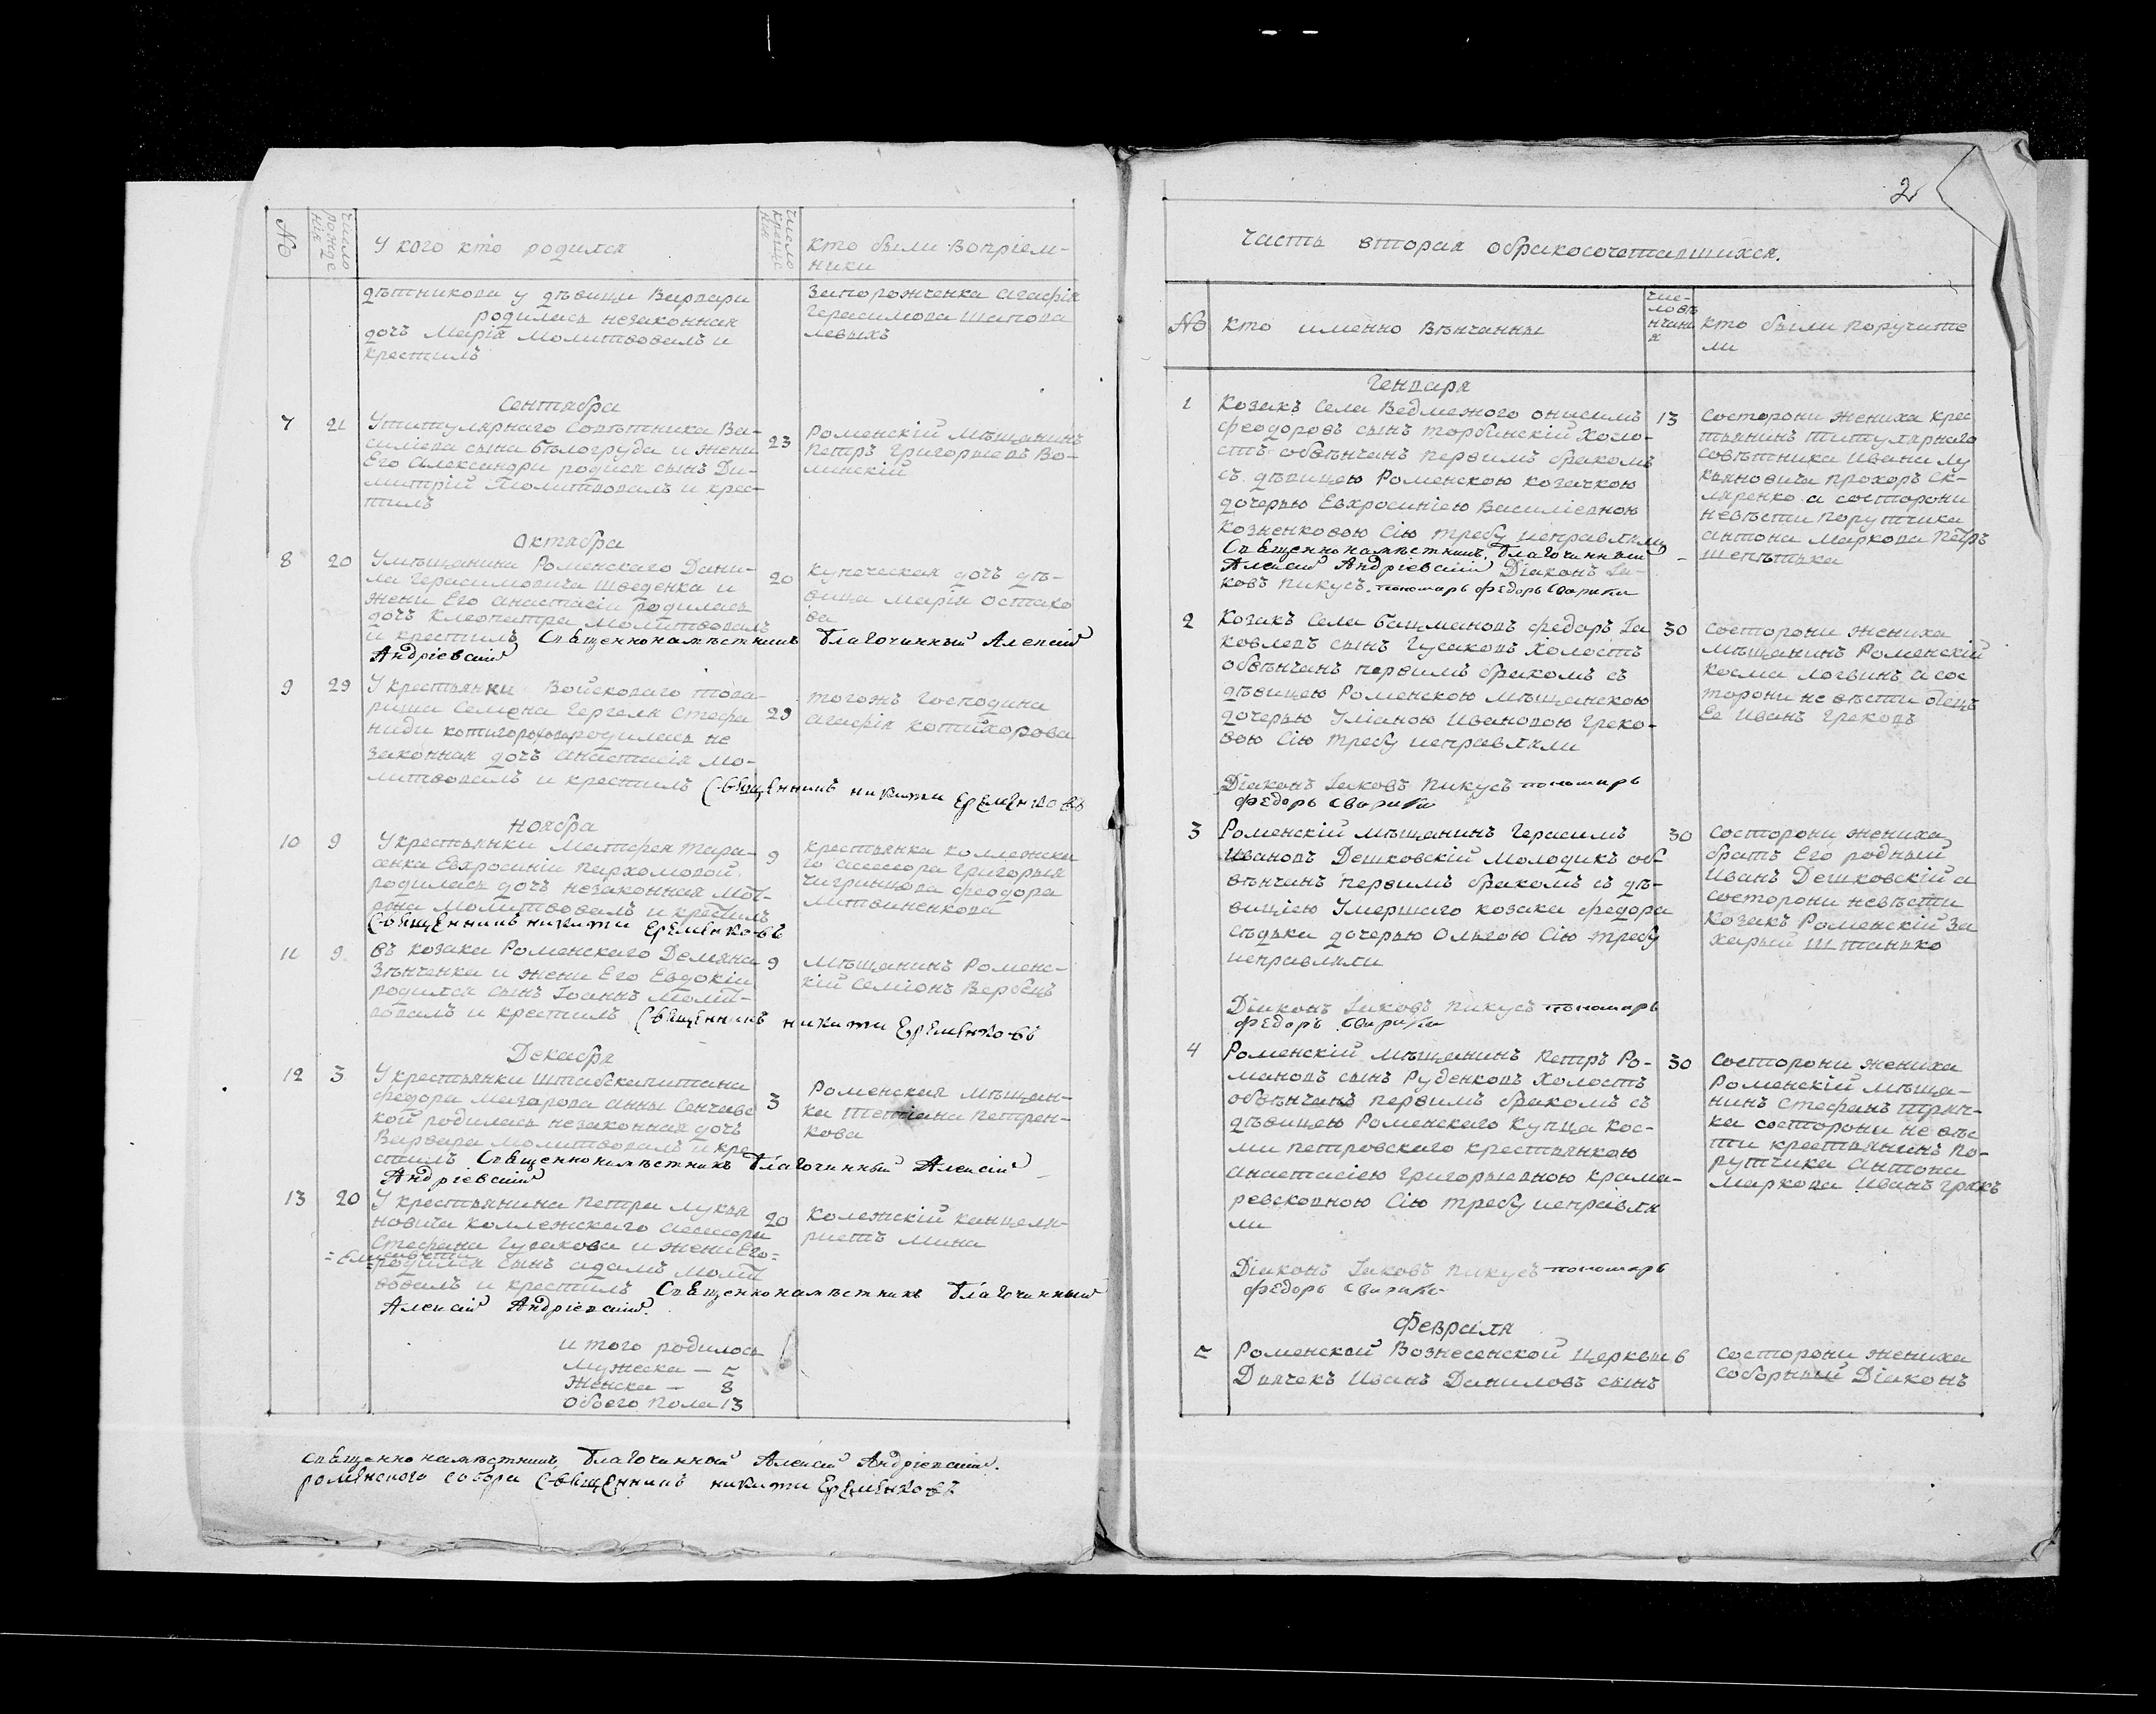 №
Число рожденія
У кого кто родился
Число крещенія
Кто были воспріем-
ники
дѣтникова у дѣвици Варвари
родилась незаконная
дочъ Марія Молитвовалъ и
крестилъ
Запорожченка Агафія
Герасимова Шапова
левыхъ
Сентября
7 21 Утитулярнаго Совѣтника Ва-
силіева сына бѣлогруда и жени
Его Александри родися сынъ Ди-
митрій Молитвовалъ и крес-
тилъ
23 Роменскій Мѣщанинъ
Петръ Григорьевъ Во-
линскій
Октября
8 20 Умѣщанина Роменскаго Дани-
ла Герасимовича Шведенка и
жени Его Анастасіи родилась
дочъ Клеопатра Молитвовалъ
и крестилъ Священнонамѣстникъ Благочинный Алексій
Андріевскій
20 Купеческая дочъ дѣ-
вица Марія Остапо
ва
9 29 У крестьянки Войсковаго това-
риша Семена Гергеля Стефа
ниди котигорохова родилась не
законная дочъ Анастасія Мо-
литвовалъ и крестилъ Священникъ никита Еременковъ
29 тогожъ Господина
Агафія котихорова
Ноября
10 9 У крестьянки Матфея Тара-
сенка Евхросиніи Пархомовой
родилась дочъ незаконная Мот-
рона молитвовалъ и крестилъ
Священникъ никита Еременковъ
9 крестьянка коллежска
го асессора Григорья
Чигринцова феодора
Литвиненкова
11 9 въ козака Роменскаго Демяна
Зѣнченка и жени Его Евдокіи
родился сынъ Іоаннъ Молит-
вовалъ и крестилъ Священникъ никита Еременковъ
9 Мѣщанинъ Роменс-
кій Семіонъ Вербецъ
Декабря
12 3 У крестьянки штабскапитана
федора Магарова Анны Сенчавс
кой родилась незаконная дочъ
Варвара Молитвовалъ и кре
стилъ Священнонамѣстникъ Благочинный Алексій
Андріевскій
3 Роменская мѣщан-
ка Тетіана Петрен-
кова
13 20 У крестьянина Петра лукья
новича коллежскаго асессора
Стефана Гусакова и жени Его=
=Елисавети= родился сынъ адамъ Молит
вовалъ и крестилъ Священнонамѣстникъ Благочинный
Алексій Андріевскій.
20 Колежскій канцеля-
ристъ Мина
и того родилось
Мужеска — 5
Женска — 8
Обоего пола 13
Священнонамѣстникъ Благочинный Алексій Андріевскій.
роменского собора Священникъ никита Еременковъ
2
Часть вторая обракосочетавшихся.
№
Кто именно Вѣнчанны
чис-
ло вѣ
нчані
я
кто были поручите
ли
Генваря
1 Козакъ Села Ведмежого онисимъ
феодоровъ сынъ торбинскій Холо-
стъ обвѣнчанъ первимъ бракомъ
съ дѣвицею Роменскою козачкою
дочерью Евхросиніею Василіевною
Козненковою Сію требу исправляли
Священнонамѣстникъ, Благочинный
Алексій Андріевскій Діаконъ Іа-
ковъ Пикусъ. пономарь федоръ Сварика
13 Состорони жениха крес
тьянинъ титулярнаго
совѣтника Ивана лу
кьяновича прохоръ Ск-
ляренко а состорони
невѣсти порутчика
антона Маркова Петръ
Шепѣтька
2 Козакъ Села бацмановъ федоръ Іа
ковлевъ сынъ Гусаковъ Холостъ
обвѣнчанъ первимъ бракомъ съ
дѣвицею Роменскою мѣщанскою
дочерью Уліаною Ивановою Греко-
вою Сію требу исправляли
Діаконъ Іаковъ Пикусъ пономарь
федоръ Сварика
30 Состорони жениха
мѣщанинъ Роменскій
косма логвинъ, а сос
торони невѣсти отецъ
Ее Иванъ Грековъ
3 Роменскій мѣщанинъ Герасимъ
Ивановъ Дешковскій Молодикъ об-
вѣнчанъ первимъ бракомъ съ дѣ-
вицією Умершаго козака федора
Сѣдька дочерью Ольгою Сію требу
исправляли
Діаконъ Іаковъ Пикусъ пономарь
федоръ Сварика
30 Состорони жениха
братъ Его родный
Иванъ Дешковскій а
состорони невѣсти
Козакъ Роменскій За
харый Штанько
4 Роменскій мѣщанинъ Петръ Ро-
мановъ сынъ Руденковъ Холостъ
обвѣнчанъ первимъ бракомъ съ
дѣвицею Роменскаго Купца Кос-
ми Петровскаго крестьянкою
анастасіею Григорьевною Крама-
ревсковною Сію требу исправля
ли
Діаконъ Іаковъ Пикусъ пономарь
федоръ Сварика
30 Состорони жениха
Роменскій мѣща-
нинъ Стефанъ
ка состорони невѣс
ти крестьянинъ по-
рутчика Антона
Маркова Иванъ Грякъ
Февраля
5 Роменской Вознесенской церквы
Дьячекъ Иванъ Даниловъ сынъ
6 Состорони жениха
соборный Діаконъ